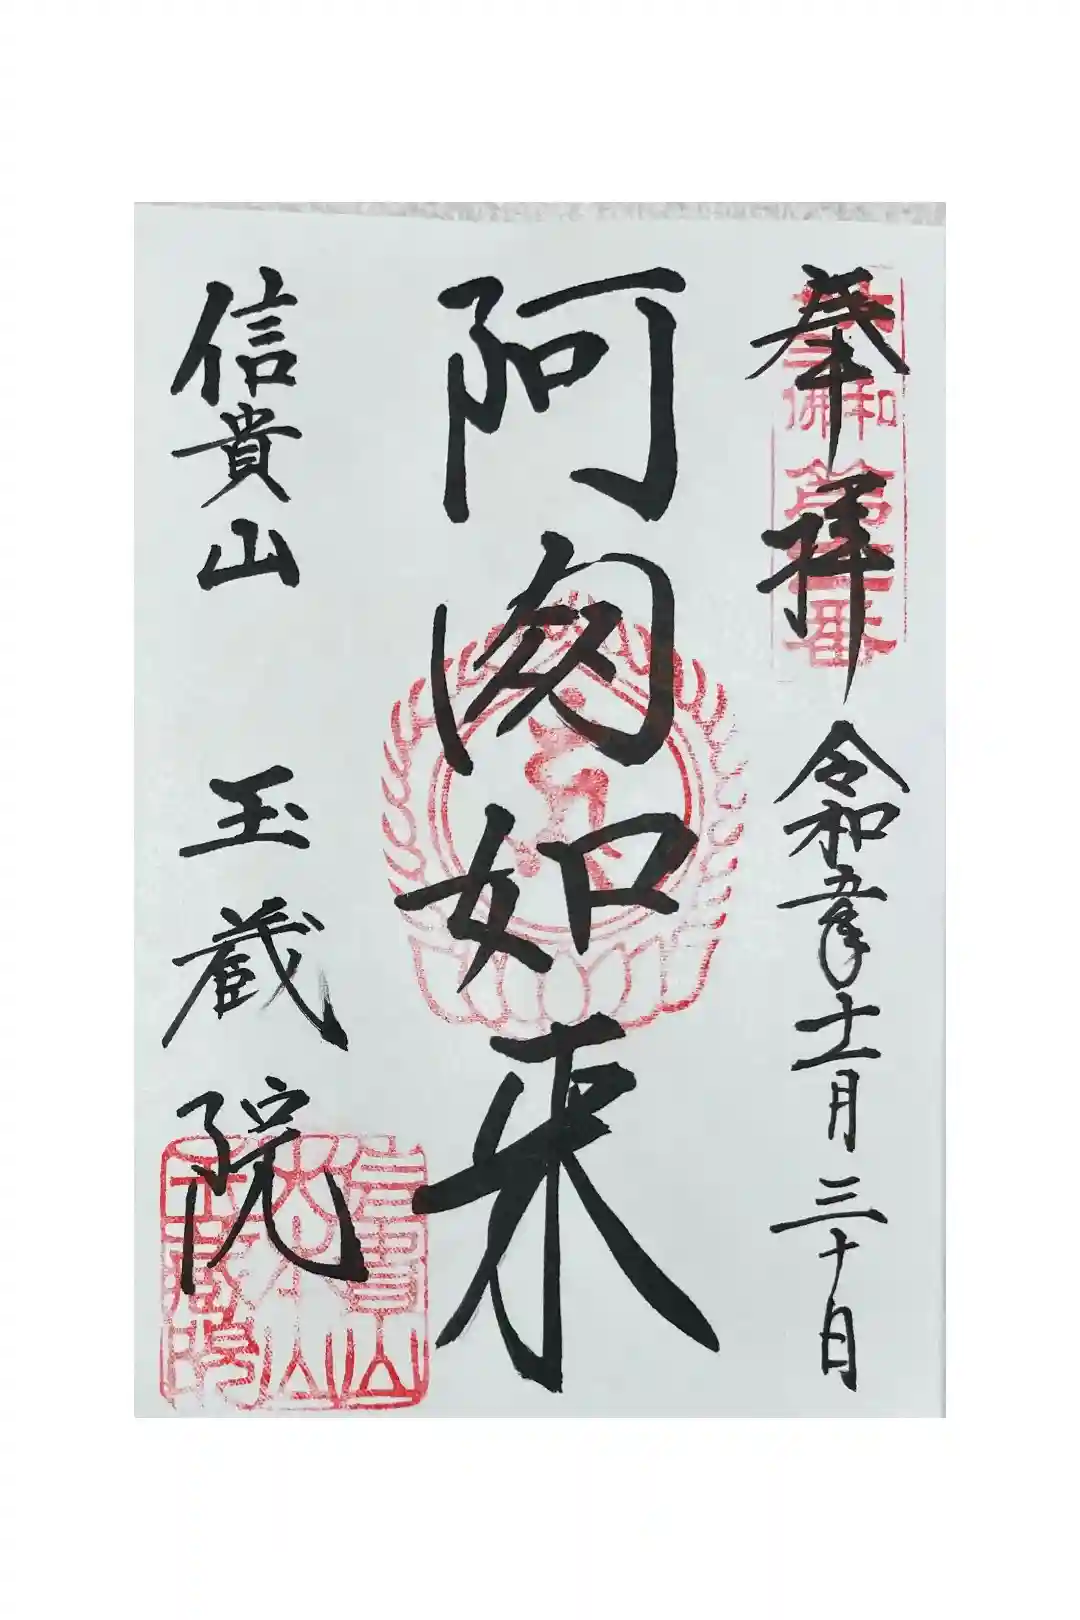 奉拝
令和五年十一月三十日
阿閦如来
信貴山 玉蔵院
信貴山
大本山
玉蔵院